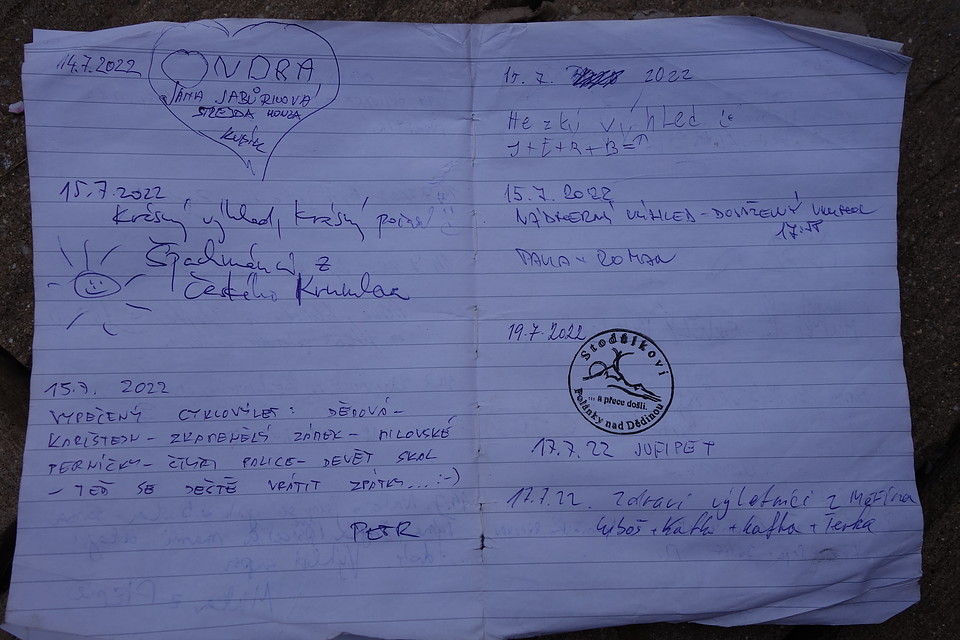 14.7.2022
ONDRA
JANA JABŮRKOVÁ
STREJDA HONZA
KUBÍK
15.7.2022
Krásný výhled, krásný
z
Českého Krumlova
15.7. 2022
VYPEČENÝ CYKLOVÝLET: DĚDOVÁ-
KARLŠTEJN - ZKAMENĚLÝ ZÁMEK - MILOVSKÉ
PERNÍČKY - ČTYŘI PALICE - DEVĚT SKAL
- TEĎ SE JEŠTĚ VRÁTIT ZPÁTKY...:-)
PETR
15.7. 2022
Hezký výhled
J+E+R+B=
15.7.2022
NÁDHERNÝ VÝHLED -
ROMAN
19.7.2022
Stodůlkovi
... a přece došli.
Polánky nad Dědinou
17.7.22
17.7.22. Zdraví výletníci z Měřína
Luboš + Katka + Kafka + Terka